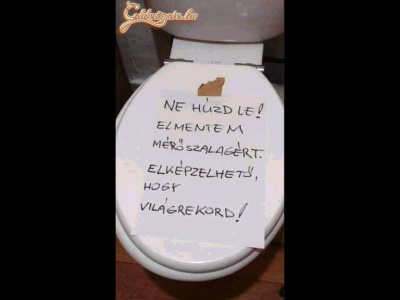 NE HÚZD LE!
ELMENTEM
MÉRŐSZALAGÉRT.
ELKÉPZELHETŐ,
HOGY
VILÁGREKORD!